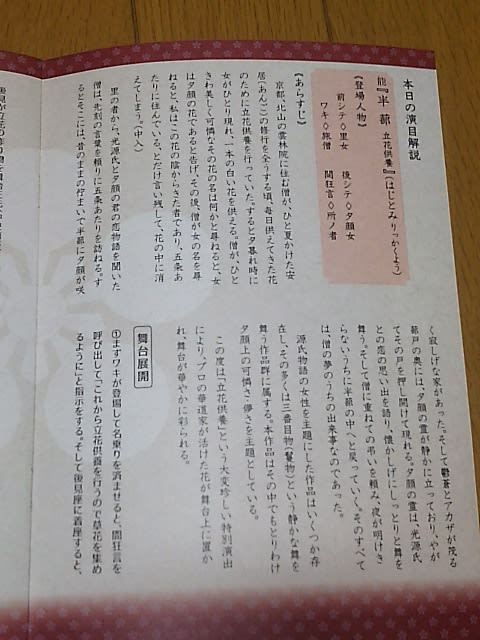 本日の演目解説
能『半蔀 立花供養』(はじとみ りっかくよう)
【登場人物】
前シテ◇里女　後シテ◇夕顔女
ワキ◇旅僧　間狂言◇所ノ者
【あらすじ】
京都、北山の雲林院に住む僧が、ひと夏かけた安
居(あんご)の修行を全うする頃、毎日供えてきた花
のために立花供養を行っていた。すると夕暮れ時に
女がひとり現れ、一本の白い花を供える。僧が、ひと
きわ美しく可憐なその花の名は何かと尋ねると、女
は夕顔の花であると告げ、その後、僧が女の名を尋
ねると、私は、この花の陰からきた者であり、五条あ
たりに住んでいる、とだけ言い残して、花の中に消
えてしまう。〈中入〉
里の者から、光源氏と夕顔の君の恋物語を聞いた
僧は、先刻の言葉を頼りに五条あたりを訪ねる。す
るとそこには、昔のままの佇まいで半蔀に夕顔が咲
く寂しげな家があった。そして鬱蒼とアカザが茂る
蔀戸の奥には、夕顔の霊が静かに立っており、やが
てその戸を押し開けて現れる。夕顔の霊は、光源氏
との恋の思い出を語り、懐かしげにしっとりと舞を
舞う。そして僧に重ねての弔いを頼み、夜が明けき
らないうちに半蔀の中へと戻っていく。そのすべて
は、僧の夢のうちの出来事なのであった。
源氏物語の女性を主題にした作品はいくつか存
在し、その多くは三番目物(鬘物)という静かな舞を
舞う作品群に属する。本作品はその中でもとりわけ
夕顔上の可憐さ・儚さを主題としている。
この度は「立花供養」という大変珍しい特別演出
により、プロの華道家が活けた花が舞台上に置か
れ、舞台が華やかに彩られる。
舞台展開
①まずワキが登場して名乗りを済ませると、間狂言を
呼び出して「これから立花供養を行うので草花を集め
るように」と指示をする。そして後見座に着座すると、